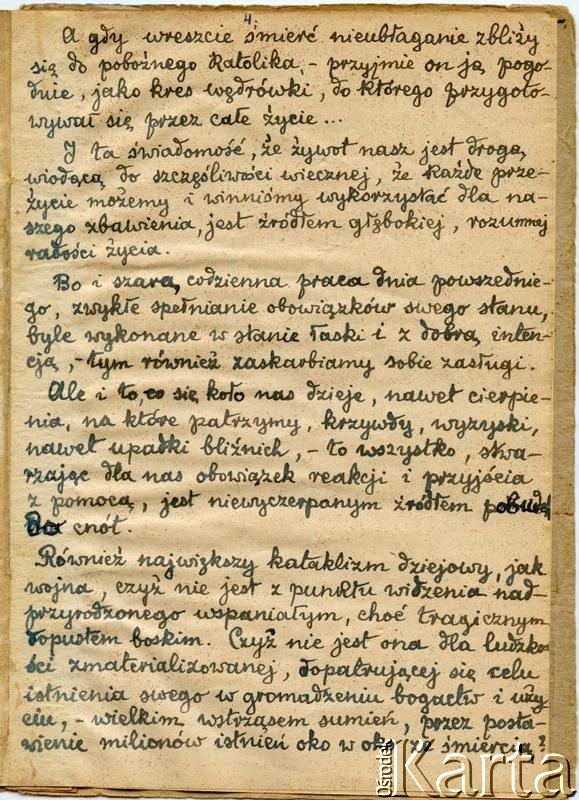 4.
A gdy wreszcie śmierć nieubłaganie zbliży
się do pobożnego katolika, - przyjmie on ją pogo-
dnie, jako kres wędrówki, do którego przygoto-
wywał się przez całe życie...
I ta świadomość, że żywot nasz jest drogą,
wiodącą do szczęśliwości wiecznej, że każde prze-
życie możemy i winniśmy wykorzystać dla na-
szego zbawienia, jest źródłem głębokiej, rozumnej
radości życia.
Bo i szara, codzienna praca dnia powszednie-
go, zwykłe spełnianie obowiązków swego stanu,
byle wykonane w stanie łaski i z dobrą inten-
cją, - tym również zaskarbiamy sobie zasługi.
Ale i to, co się koło nas dzieje, nawet cierpie-
nia, na które patrzymy, krzywdy, wyzyski,
nawet upadki bliźnich, - to wszystko, stwa-
rzając dla nas obowiązek reakcji i przyjścia
z pomocą, jest niewyczerpanym źródłem
cnót.
Również największy kataklizm dziejowy, jak
wojna, czyż nie jest z punktu widzenia nad-
przyrodzonego wspaniałym, choć tragicznym
dopustem boskim. Czyż nie jest ona dla ludzko-
ści zmaterializowanej, dopatrującej się celu
istnienia swego w gromadzeniu bogactw i uży-
ciu, - wielkim wstrząsem sumień, przez posta-
wienie milionów istnień oko w oko ze śmiercią?
Ośrodek Karta